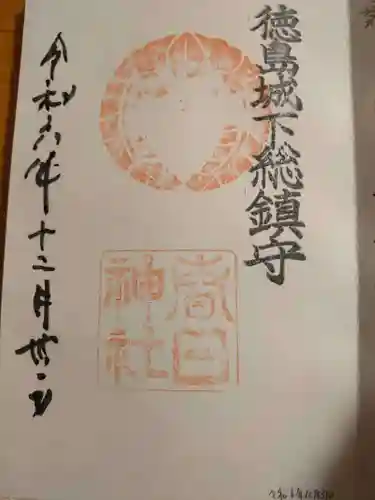 徳島城下総鎮守
春日
神社
令和六年十二月卅一日